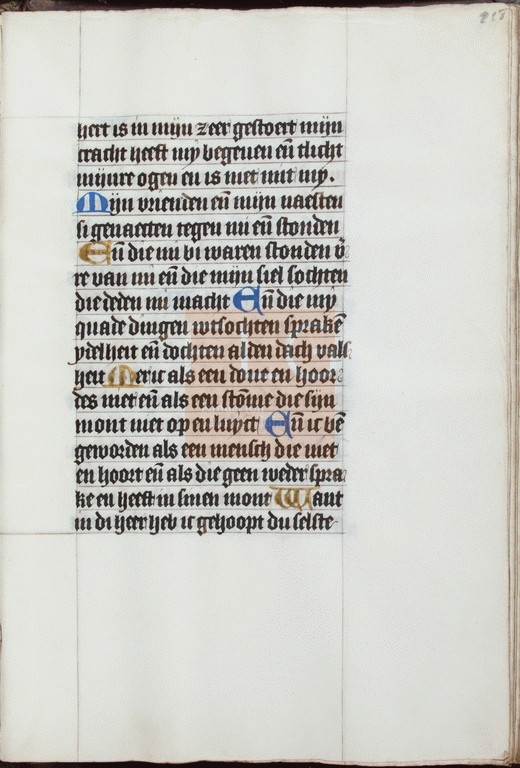 hert is in mijn zeer gestoert mijn
cracht heeft my begeuen eñ tlicht
mijnre ogen en is niet mit my.
Mijn vrienden eñ mijn naesten
si genaecten tegen mi eñ stonden
Eñ die mi bi waren stonden v̄
re van mi eñ die mijn siel sochten
die deden mi macht Eñ die my
quade dingen wtsochten sprakē
ydelheit eñ dochten al den dach vals
heit Mer ic als een doue en hoor
des niet eñ als een stōme die sijn
mont niet op en luyct Eñ ic bē
geworden als een mensch die niet
en hoort eñ als die geen weder spra
ke en heeft in sinen mont Want
in di heer heb ic gehoopt du selste